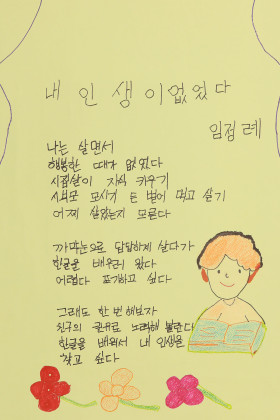 내 인생이 없었다
임점례
나는 살면서
행복한 때가 없었다
시집살이 자식 키우기
시부모 모시기 돈 벌어 먹고 살기
어찌 살았는지 모른다
까막눈으로 답답하게 살다가
한글을 배우러 왔다
어렵다 포기하고 싶다
그래도 한 번 해보자
친구의 권유로 노력해 본다
한글을 배워서 내 인생을
찾고 싶다